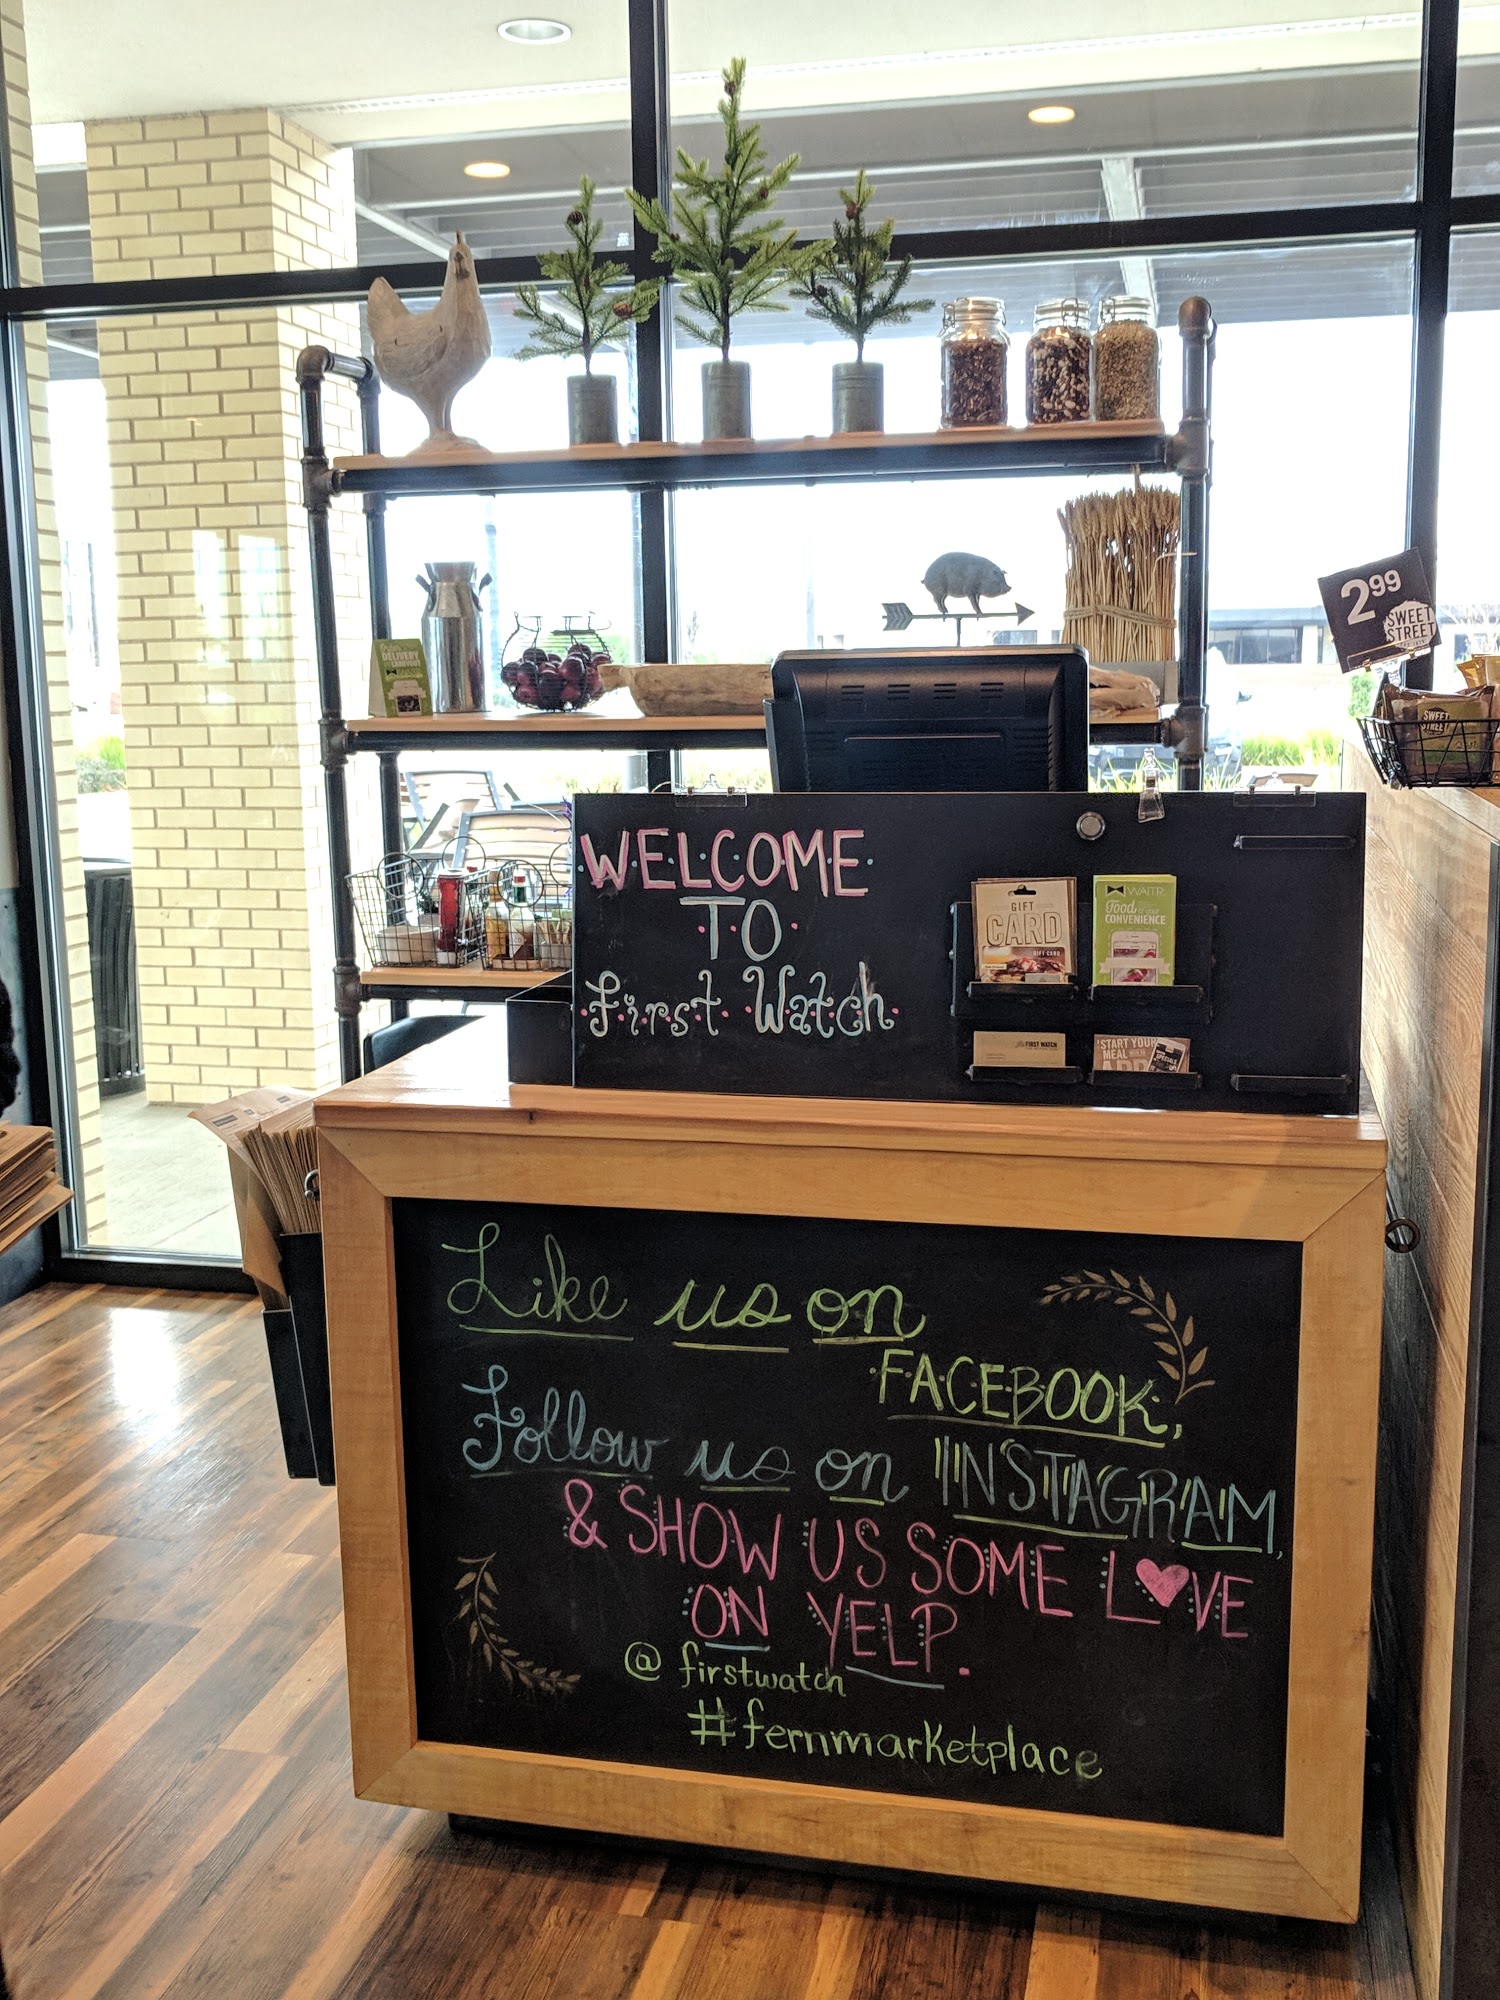 2.99
SWEET
STREET
SWEET
STREET
DELIVERY
WELCOME
TO
First Watch
GIFT
CARD
GIFT CARD
WAITR
Food
CONVENIENCE
FIRST WATCH
START YOUR
MEAL
APP
SPECIALS
Like us on
FACEBOOK,
Follow us on INSTAGRAM,
& SHOW US SOME L♥VE
ON YELP.
@firstwatch
#fernmarketplace